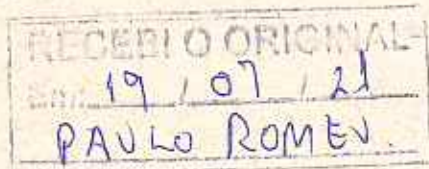 RECEBI O ORIGINAL
Em 19 / 07 / 21
PAULO ROMEU.